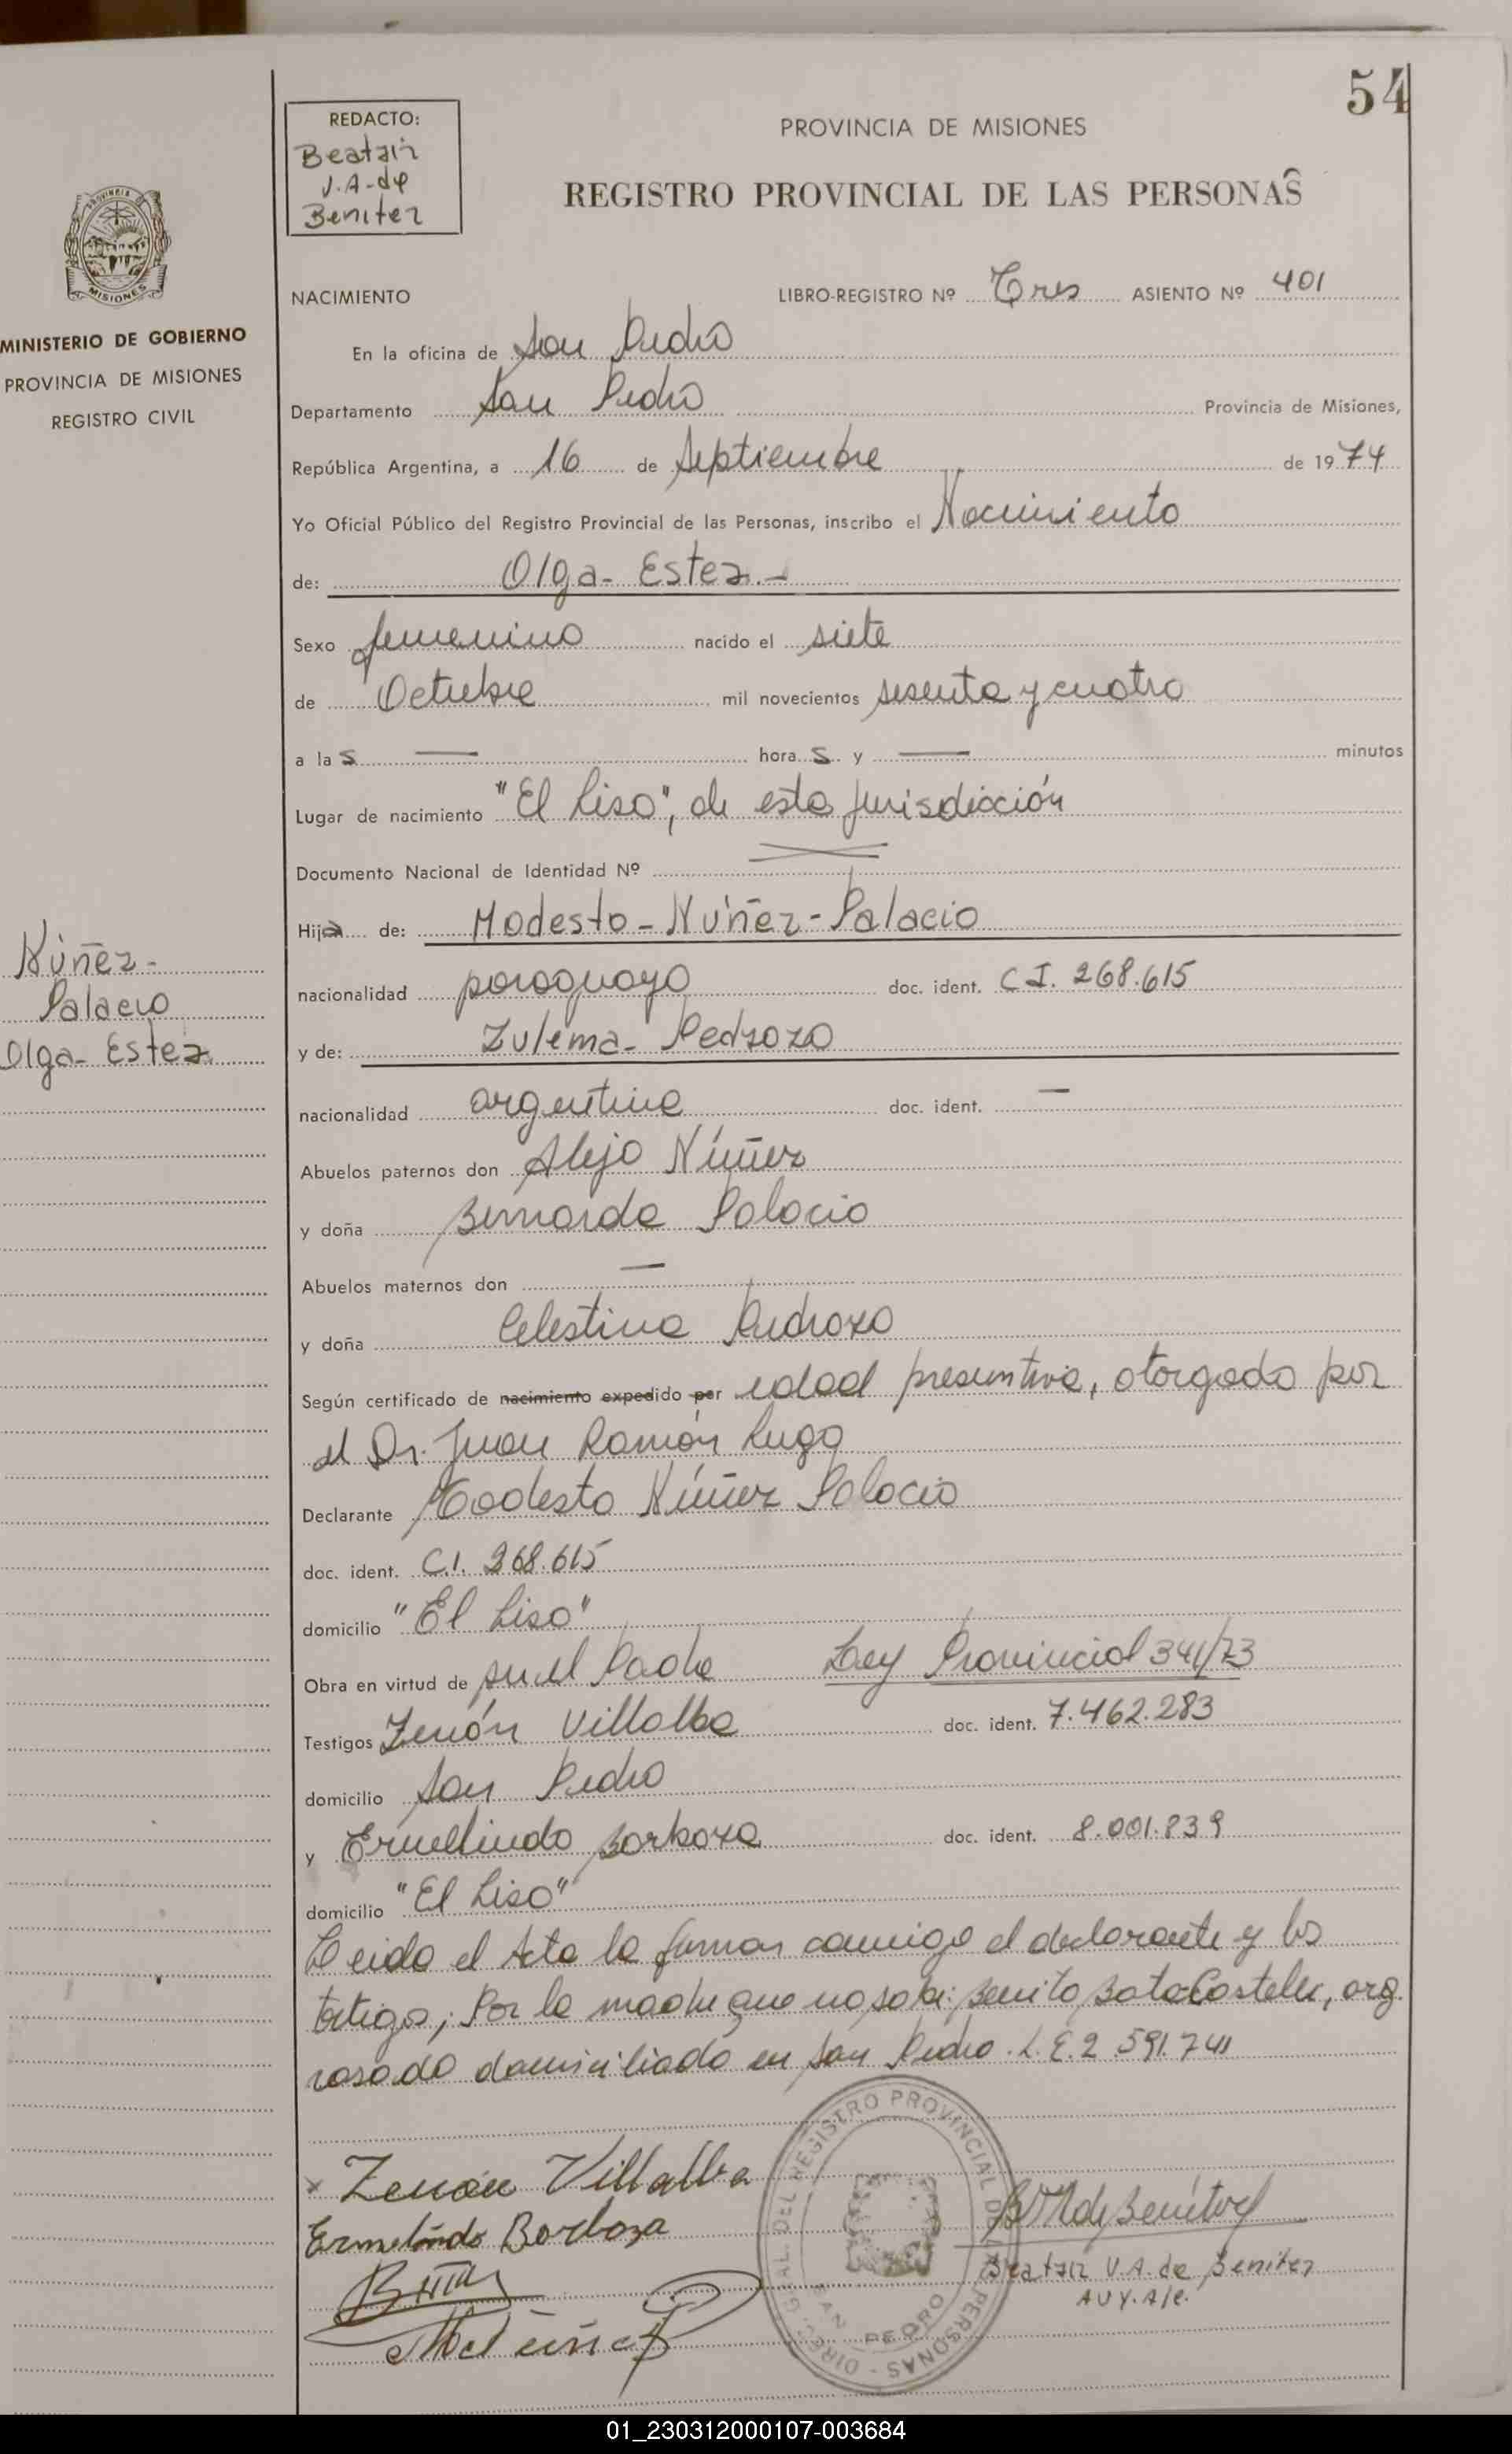 54
REDACTO:
Beatriz
V.A. de
Benitez
PROVINCIA DE MISIONES
REGISTRO PROVINCIAL DE LAS PERSONAS
PROVINCIA
MISIONES
MINISTERIO DE GOBIERNO
PROVINCIA DE MISIONES
REGISTRO CIVIL
NACIMIENTO LIBRO-REGISTRO Nº Tres ASIENTO Nº 401
En la oficina de San Pedro
Departamento San Pedro Provincia de Misiones,
República Argentina, a 16 de Septiembre de 1974
Yo Oficial Público del Registro Provincial de las Personas, inscribo el Nacimiento
de: Olga- Ester.-
Sexo femenino nacido el siete
de Octubre mil novecientos sesenta y cuatro
a las — horas y — minutos
Lugar de nacimiento "El Liso", de esta jurisdicción
Documento Nacional de Identidad Nº
Hija de: Modesto-Núñez-Palacio
Núñez-
Palacio
Olga- Ester
nacionalidad paraguayo doc. ident. C.I. 268.615
y de: Zulema- Pedrozo
nacionalidad argentina doc. ident. —
Abuelos paternos don Alejo Núñez
y doña Bernarda Palacio
Abuelos maternos don —
y doña Celestina Pedrozo
Según certificado de nacimiento expedido por edad presuntiva, otorgado por
el Dr. Juan Ramón Lugo
Declarante Modesto Núñez Palacio
doc. ident. C.I. 268.615
domicilio "El Liso"
Obra en virtud de ser el Padre Ley Provincial 341/73
Testigos Zenón Villalba doc. ident. 7.462.283
domicilio San Pedro
y Ermelindo Borboza doc. ident. 8.001.839
domicilio "El Liso"
Leida el Acta la firman conmigo el declarante y los
testigos; Por la madre que no sabe: Benito Bata, arg.
casado domiciliado en San Pedro. L.E. 2.591.741
x Zenón Villalba
Ermelindo Borboza
Beatriz V.A. de Benitez
AUX. A/C.
DIREC. GRAL. DEL REGISTRO PROVINCIAL DE LAS PERSONAS -
SAN PEDRO
01_230312000107-003684